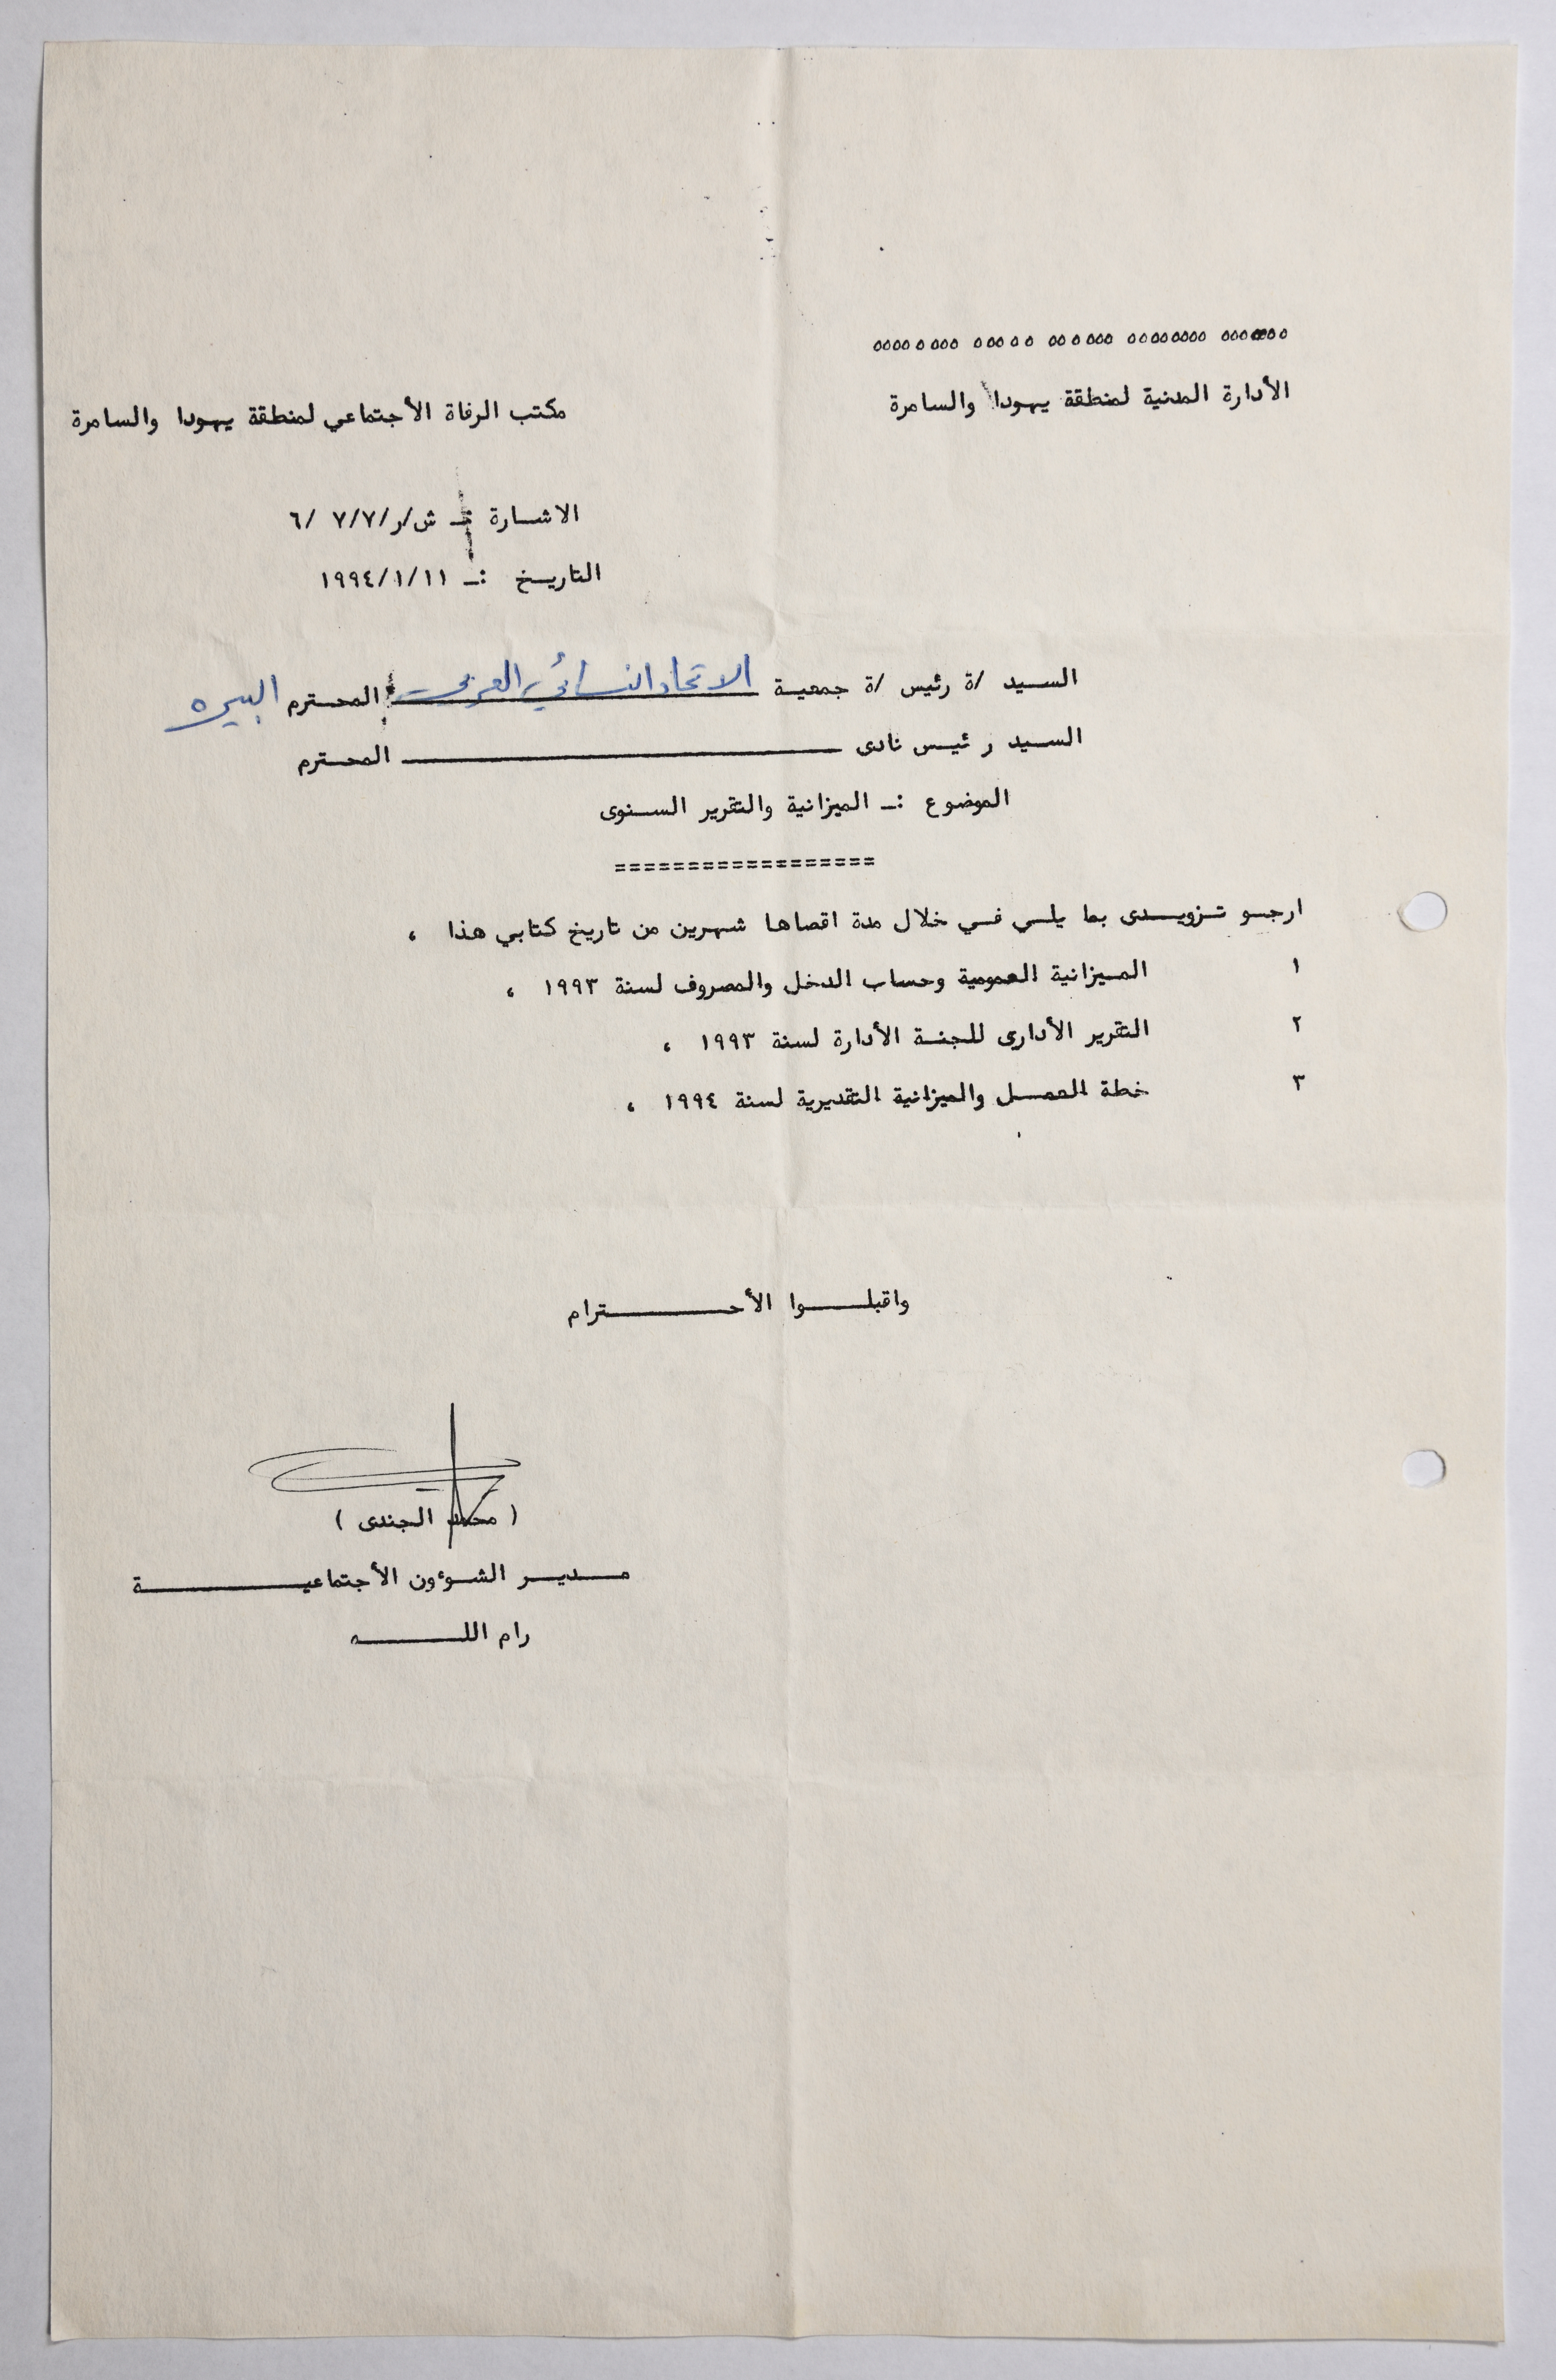 ooooooo oooooooo oooooo ooooo oooooooo
الأدارة المدنية لمنطقة يهودا والسامرة
مكتب الرفاة الأجتماعي لمنطقة يهودا والسامرة
الاشارة :ـ ش/ر/٧/٧ /٦
التاريخ :ـ ١٩٩٤/١/١١
السيد /ة رئيس /ة جمعية الاتحاد النسائي العربي المحترم البيره
السيد رئيس نادى ــــــــــــــــــــ المحترم
الموضوع :ـ الميزانية والتقرير السنوى
==================
ارجو تزويدى بما يلي في خلال مدة اقصاها شهرين من تاريخ كتابي هذا ،
١ الميزانية العمومية وحساب الدخل والمصروف لسنة ١٩٩٣ ،
٢ التقرير الأدارى للجنة الأدارة لسنة ١٩٩٣ ،
٣ خطة العمل والميزانية التقديرية لسنة ١٩٩٤ ،
واقبلــوا الأحــــــترام
( محمد الجندى )
مــديــر الشوءون الأجتماعيــــــــة
رام اللــــــه